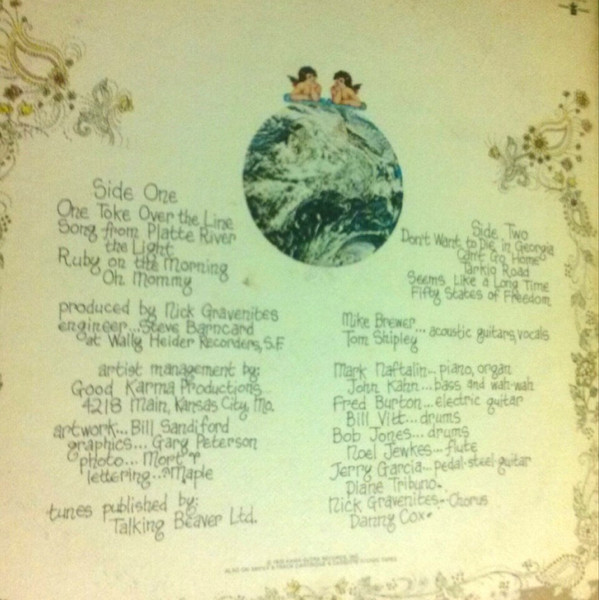 Side One
One Toke Over the Line
Song from Platte River
the Light
Ruby on the Morning
Oh Mommy
produced by Nick Gravenites
engineer...Steve Barncard
at Wally Heider Recorders, S.F.
artist management by:
Good Karma Productions
4218 Main, Kansas City, Mo.
artwork... Bill Sandiford
graphics... Gary Peterson
photo... Mort
lettering... Maple
tunes published by:
Talking Beaver Ltd.
Side Two
Don't Want to Die in Georgia
Can't Go Home
Tarkio Road
Seems Like a Long Time
Fifty States of Freedom
Mike Brewer
Tom Shipley ...acoustic guitars, vocals
Mark Naftalin... piano, organ
John Kahn... bass and wah-wah
Fred Burton... electric guitar
Bill Vitt... drums
Bob Jones... drums
Noel Jewkes... flute
Jerry Garcia... pedal steel guitar
Diane Tribuno
Nick Gravenites Chorus
Danny Cox